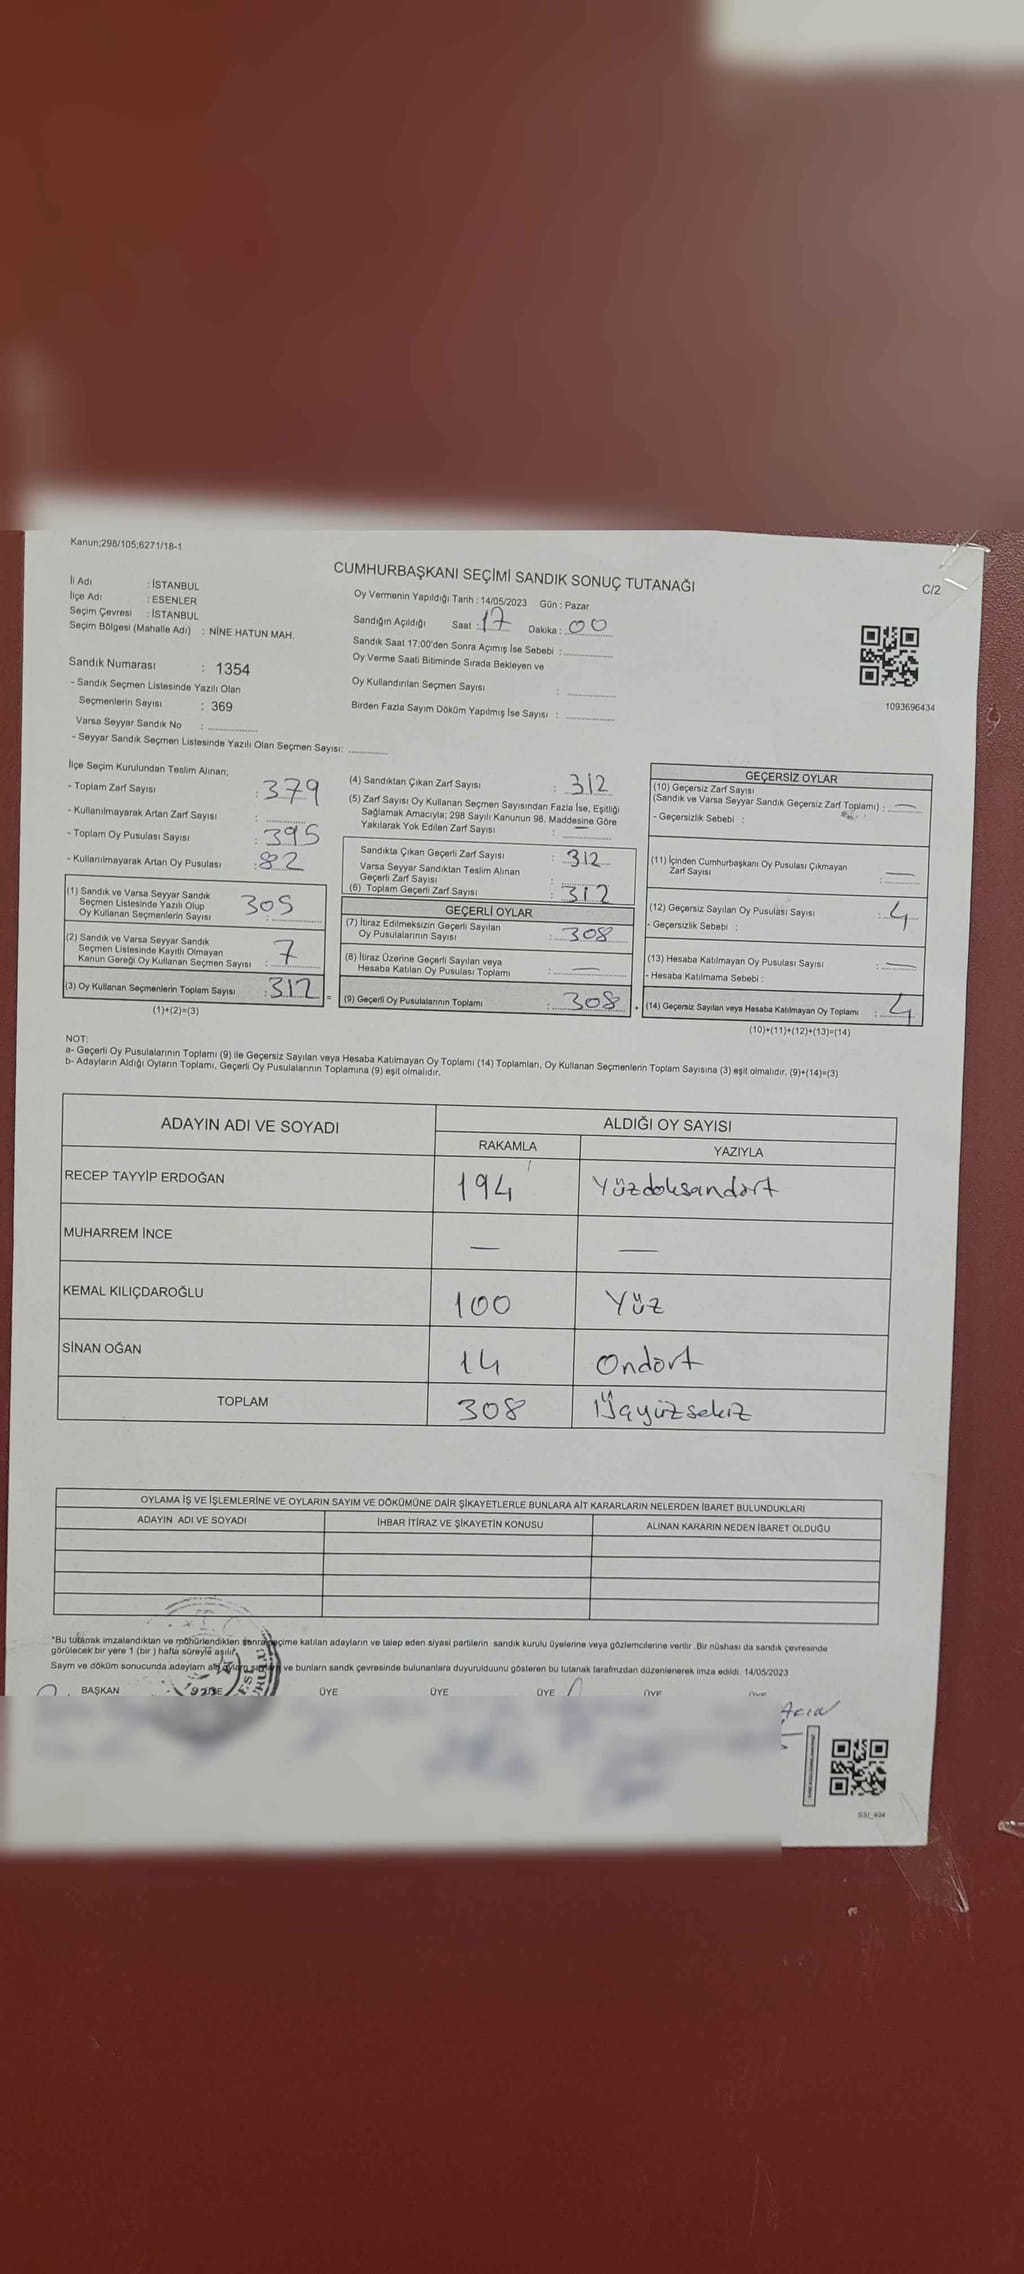 Kanun;298/105;6271/18-1
CUMHURBAŞKANI SEÇİMİ SANDIK SONUÇ TUTANAĞI
C/2
İl Adı : İSTANBUL
İlçe Adı : ESENLER
Seçim Çevresi : İSTANBUL
Seçim Bölgesi (Mahalle Adı) : NİNE HATUN MAH.
Oy Vermenin Yapıldığı Tarih : 14/05/2023 Gün : Pazar
Sandığın Açıldığı Saat : 17 Dakika : 00
Sandık Saat 17:00'den Sonra Açımış İse Sebebi :
Oy Verme Saati Bitiminde Sırada Bekleyen ve
Oy Kullandırılan Seçmen Sayısı :
Birden Fazla Sayım Döküm Yapılmış İse Sayısı :
1093696434
Sandık Numarası : 1354
- Sandık Seçmen Listesinde Yazılı Olan
Seçmenlerin Sayısı : 369
Varsa Seyyar Sandık No :
- Seyyar Sandık Seçmen Listesinde Yazılı Olan Seçmen Sayısı:
İlçe Seçim Kurulundan Teslim Alınan;
- Toplam Zarf Sayısı : 379
- Kullanılmayarak Artan Zarf Sayısı :
- Toplam Oy Pusulası Sayısı : 395
- Kullanılmayarak Artan Oy Pusulası : 82
(1) Sandık ve Varsa Seyyar Sandık
Seçmen Listesinde Yazılı Olup
Oy Kullanan Seçmenlerin Sayısı : 305
(2) Sandık ve Varsa Seyyar Sandık
Seçmen Listesinde Kayıtlı Olmayan
Kanun Gereği Oy Kullanan Seçmen Sayısı : 7
(3) Oy Kullanan Seçmenlerin Toplam Sayısı : 312
(1)+(2)=(3)
(4) Sandıktan Çıkan Zarf Sayısı : 312
(5) Zarf Sayısı Oy Kullanan Seçmen Sayısından Fazla İse, Eşitliği
Sağlamak Amacıyla; 298 Sayılı Kanunun 98. Maddesine Göre
Yakılarak Yok Edilen Zarf Sayısı : —
Sandıkta Çıkan Geçerli Zarf Sayısı : 312
Varsa Seyyar Sandıktan Teslim Alınan
Geçerli Zarf Sayısı :
(6) Toplam Geçerli Zarf Sayısı : 312
GEÇERLİ OYLAR
(7) İtiraz Edilmeksizin Geçerli Sayılan
Oy Pusulalarının Sayısı : 308
(8) İtiraz Üzerine Geçerli Sayılan veya
Hesaba Katılan Oy Pusulası Toplamı : —
= (9) Geçerli Oy Pusulalarının Toplamı : 308
GEÇERSİZ OYLAR
(10) Geçersiz Zarf Sayısı
(Sandık ve Varsa Seyyar Sandık Geçersiz Zarf Toplamı) : —
- Geçersizlik Sebebi :
(11) İçinden Cumhurbaşkanı Oy Pusulası Çıkmayan
Zarf Sayısı : —
(12) Geçersiz Sayılan Oy Pusulası Sayısı : 4
- Geçersizlik Sebebi :
(13) Hesaba Katılmayan Oy Pusulası Sayısı : —
- Hesaba Katılmama Sebebi :
+ (14) Geçersiz Sayılan veya Hesaba Katılmayan Oy Toplamı : 4
(10)+(11)+(12)+(13)=(14)
NOT:
a- Geçerli Oy Pusulalarının Toplamı (9) ile Geçersiz Sayılan veya Hesaba Katılmayan Oy Toplamı (14) Toplamları, Oy Kullanan Seçmenlerin Toplam Sayısına (3) eşit olmalıdır. (9)+(14)=(3)
b- Adayların Aldığı Oyların Toplamı, Geçerli Oy Pusulalarının Toplamına (9) eşit olmalıdır.
ADAYIN ADI VE SOYADI
ALDIĞI OY SAYISI
RAKAMLA YAZIYLA
RECEP TAYYİP ERDOĞAN 194 Yüzdoksandört
MUHARREM İNCE — —
KEMAL KILIÇDAROĞLU 100 Yüz
SİNAN OĞAN 14 Ondört
TOPLAM 308 Üçyüzsekiz
OYLAMA İŞ VE İŞLEMLERİNE VE OYLARIN SAYIM VE DÖKÜMÜNE DAİR ŞİKAYETLERLE BUNLARA AİT KARARLARIN NELERDEN İBARET BULUNDUKLARI
ADAYIN ADI VE SOYADI İHBAR İTİRAZ VE ŞİKAYETİN KONUSU ALINAN KARARIN NEDEN İBARET OLDUĞU
*Bu tutanak imzalandıktan ve mühürlendikten sonra seçime katılan adayların ve talep eden siyasi partilerin sandık kurulu üyelerine veya gözlemcilerine verilir .Bir nüshası da sandık çevresinde
görülecek bir yere 1 (bir ) hafta süreyle asılır.
Sayım ve döküm sonucunda adayların ve bunların sandk çevresinde bulunanlara duyurulduunu gösteren bu tutanak tarafmzdan düzenlenerek imza edildi. 14/05/2023
BAŞKAN ÜYE ÜYE ÜYE ÜYE ÜYE